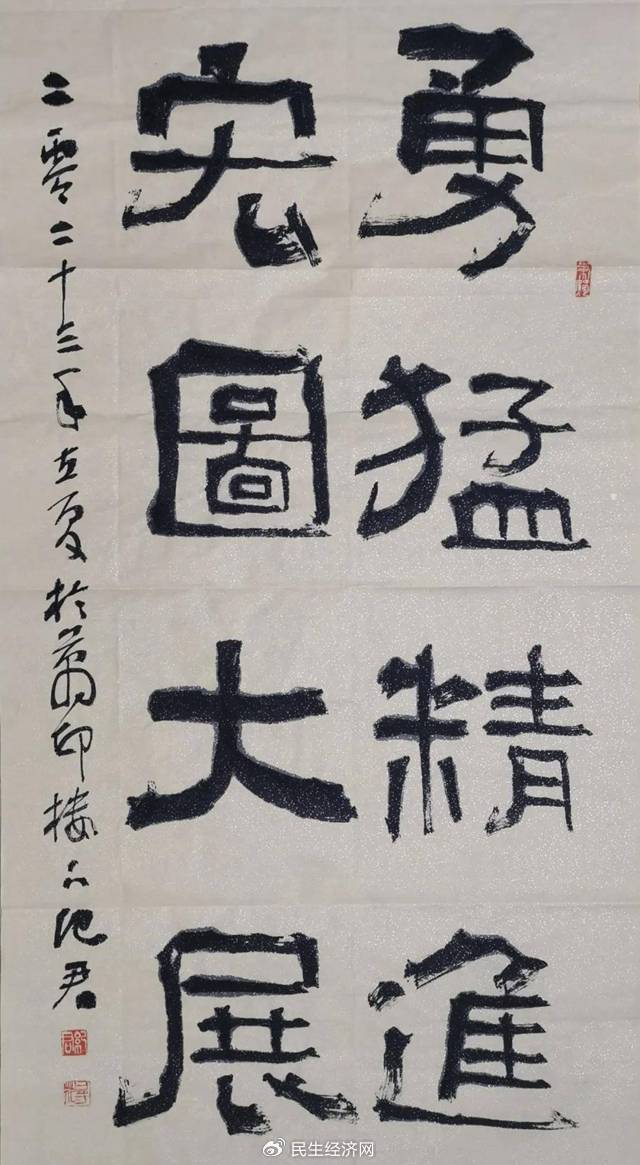 勇猛精進
宏圖大展
二零二十三年立夏於萬印樓下纪君
民生经济网